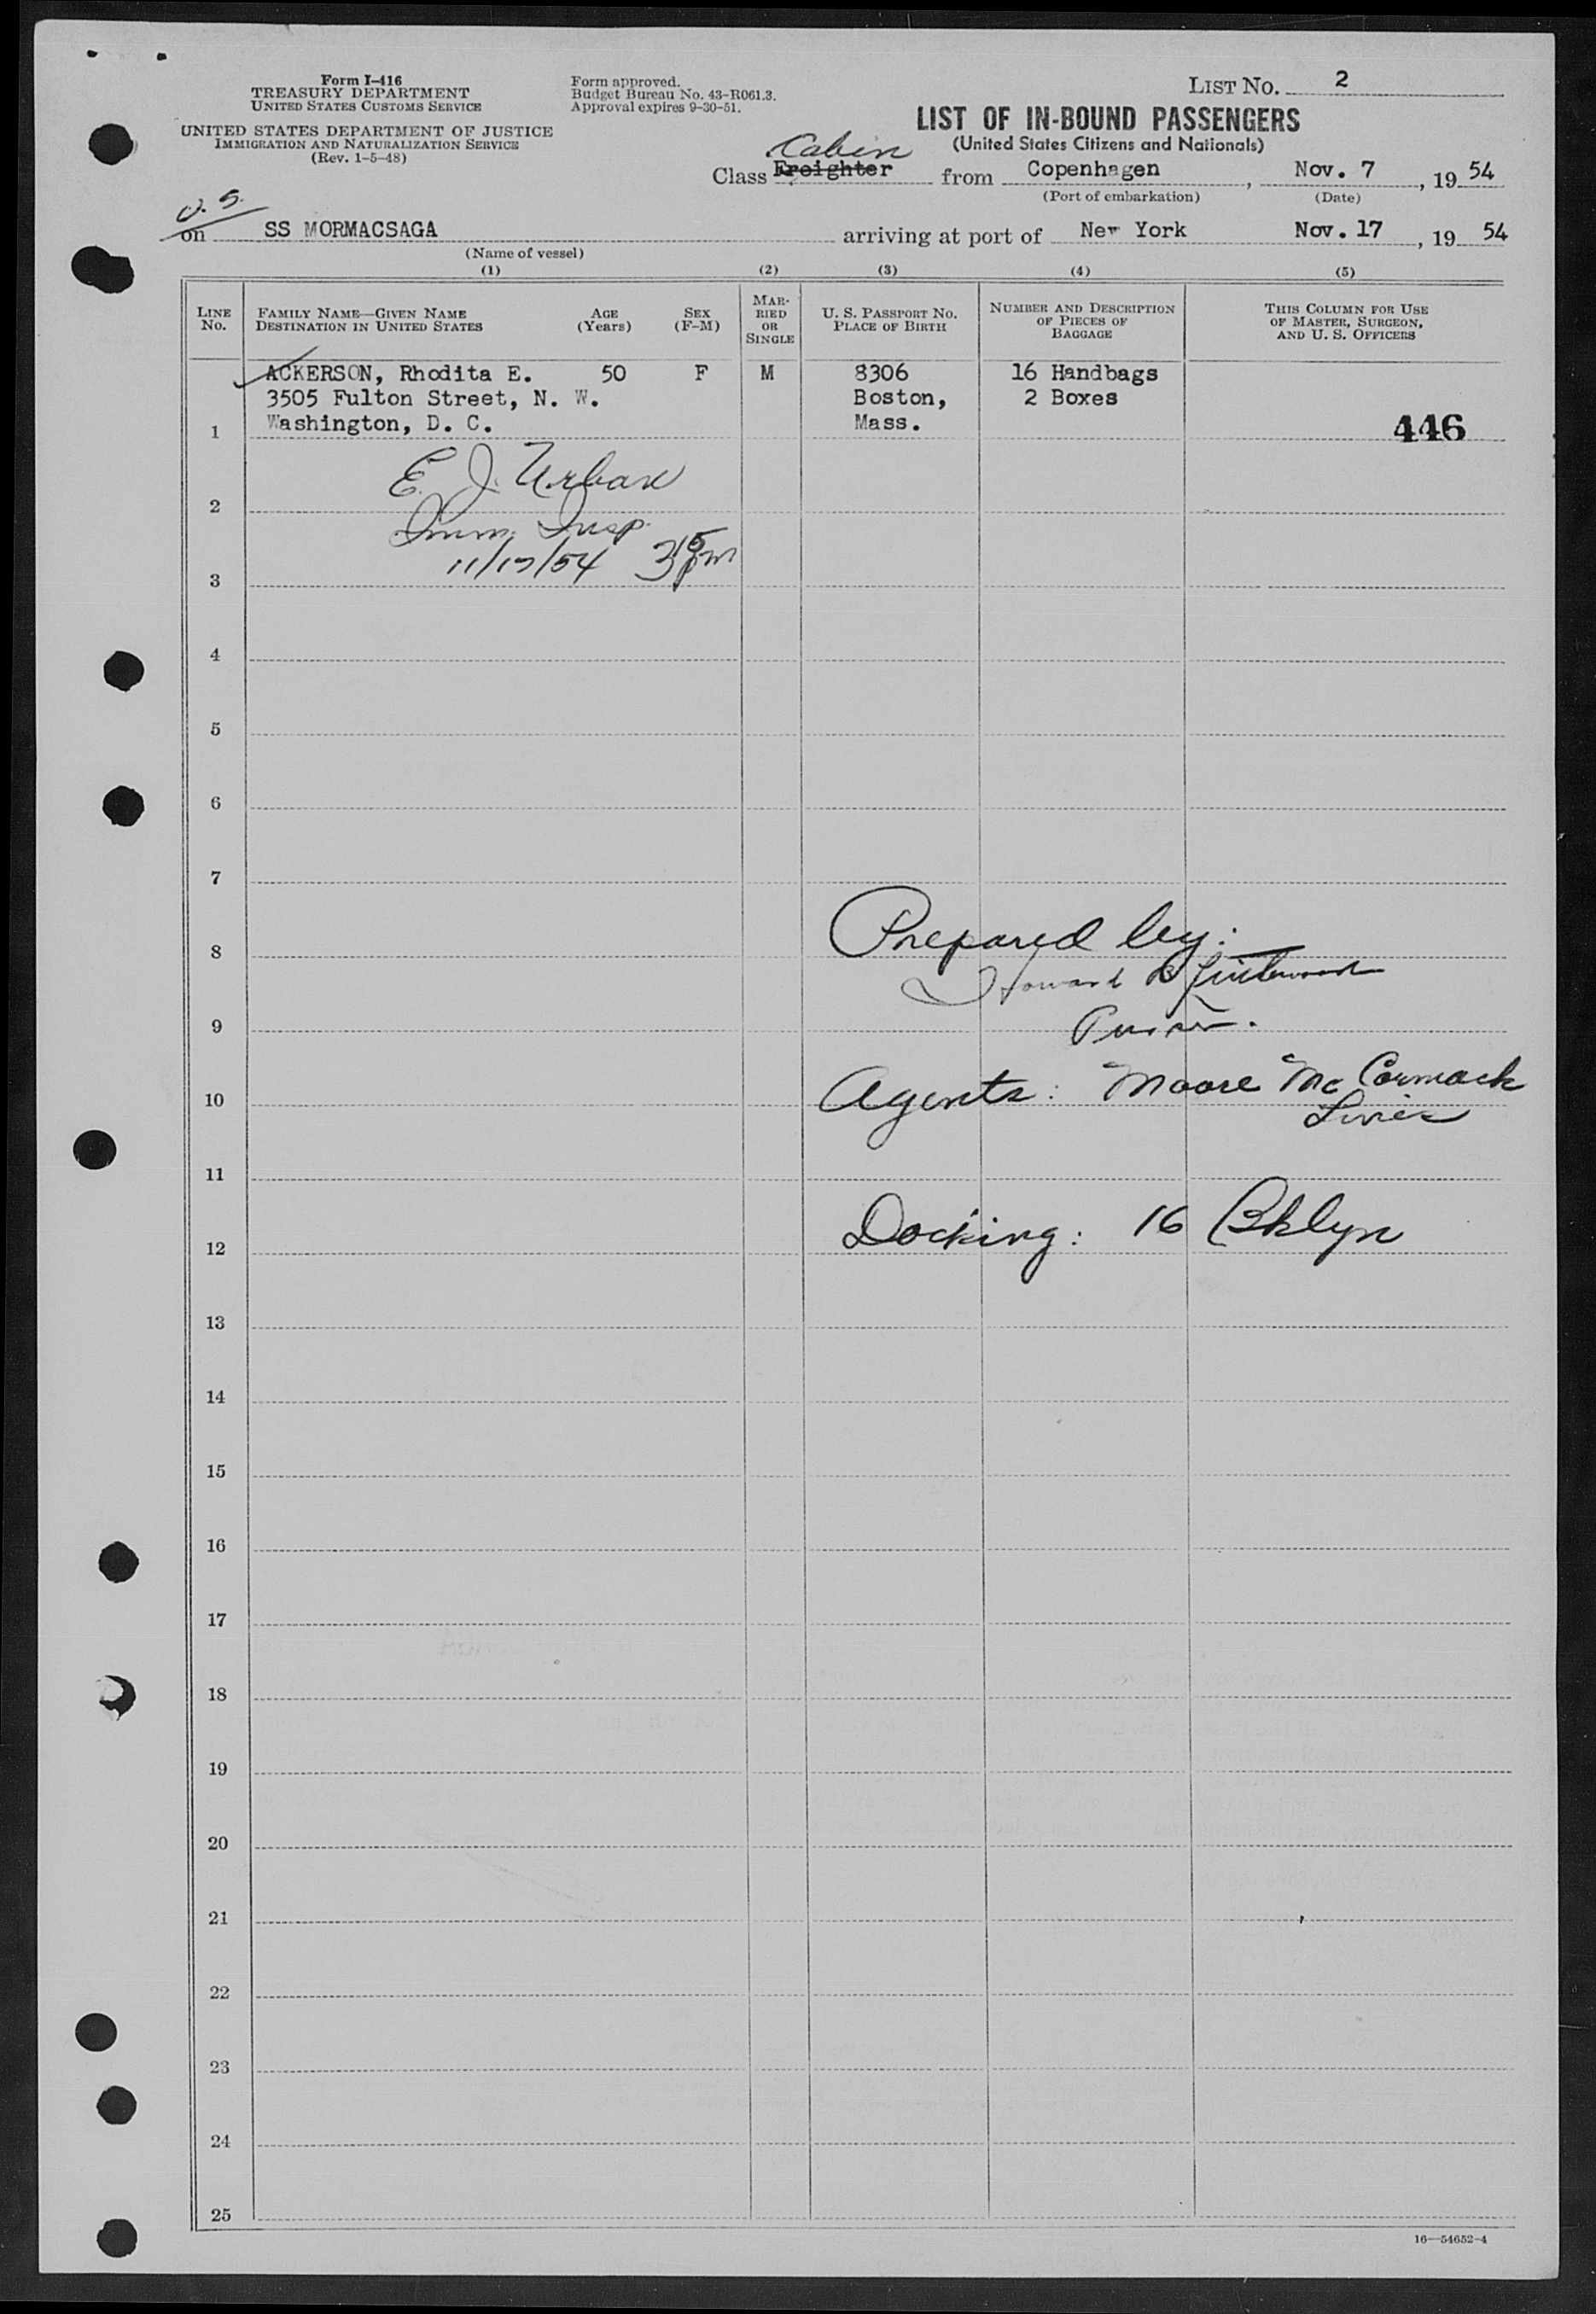 Form I-416
TREASURY DEPARTMENT
UNITED STATES CUSTOMS SERVICE
UNITED STATES DEPARTMENT OF JUSTICE
IMMIGRATION AND NATURALIZATION SERVICE
(Rev. 1-5-48)
Form approved.
Budget Bureau No. 43-R061.3.
Approval expires 9-30-51.
LIST NO. 2
LIST OF IN-BOUND PASSENGERS
(United States Citizens and Nationals)
Cabin
Class Freighter from Copenhagen, Nov. 7, 19 54
(Port of embarkation) (Date)
U. S.
on SS MORMACSAGA arriving at port of New York Nov. 17, 19 54
(Name of vessel)
(1) (2) (3) (4) (5)
LINE NO.
FAMILY NAME—GIVEN NAME
DESTINATION IN UNITED STATES
AGE (Years)
SEX (F-M)
MARRIED OR SINGLE
U. S. PASSPORT NO.
PLACE OF BIRTH
NUMBER AND DESCRIPTION OF PIECES OF BAGGAGE
THIS COLUMN FOR USE OF MASTER, SURGEON, AND U. S. OFFICERS
ACKERSON, Rhodita E. 50 F M 8306 16 Handbags
3505 Fulton Street, N. W. Boston, 2 Boxes
1 Washington, D. C. Mass. 446
E. J. Urban
2
Imm. Insp.
11/17/54 3 15 pm
3
4
5
6
7
Prepared by:
8
Howard
9
Purser.
Agents: Moore McCormack
10
Lines
11
Docking: 16 Bklyn
12
13
14
15
16
17
18
19
20
21
22
23
24
25
16—54652-4